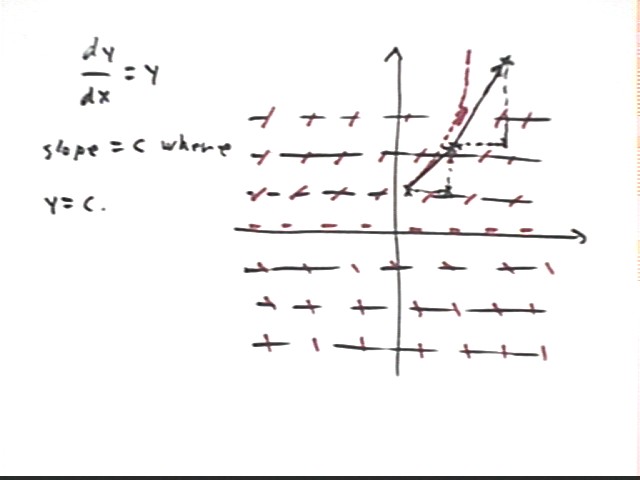 dy
dx = y
slope = c where
y = c.